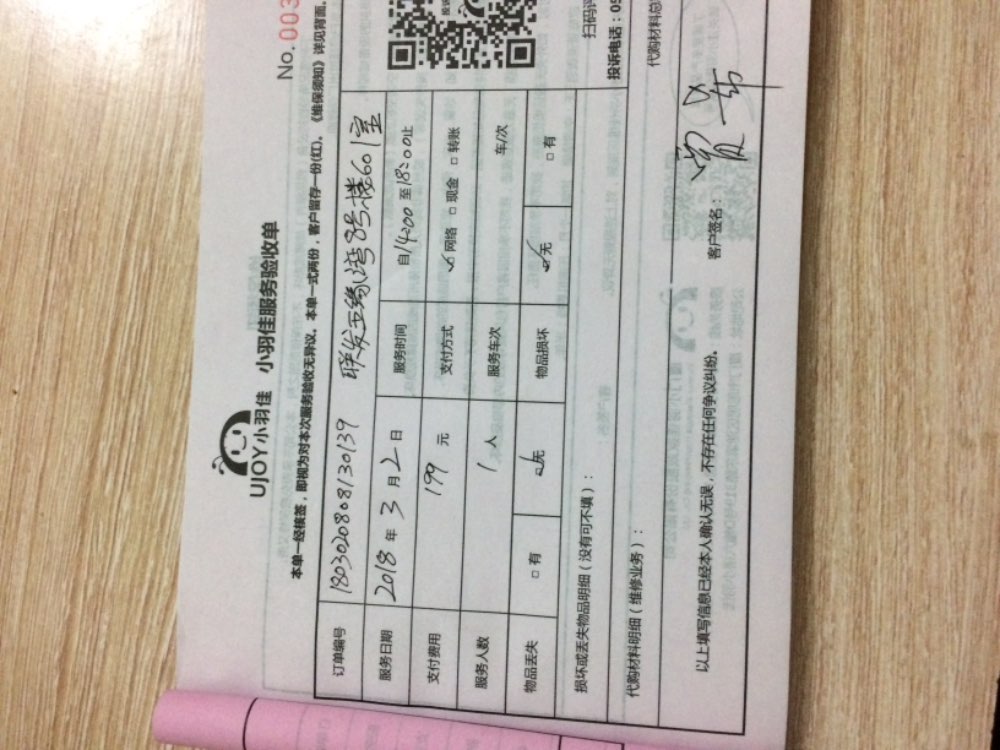 No. 003
UJOY小羽佳 小羽佳服务验收单
本单一经核签，即视为对本次服务验收无异议。本单一式两份，客户留存一份(红)。《维保须知》详见背面。
订单编号 1803020808130139 联发五缘湾8号楼601室
服务日期 2018年3月2日 服务时间 自14:00至18:00止
支付费用 199元 支付方式 ☑网络 □现金 □转账
服务人数 1人 服务车次 车/次
物品丢失 □有 ☑无 物品损坏 ☑无 □有
损坏或丢失物品明细（没有可不填）：
扫码
代购材料明细（维修业务）：
投诉电话：05
代购材料总
以上填写信息已经本人确认无误，不存在任何争议纠纷。
客户签名：